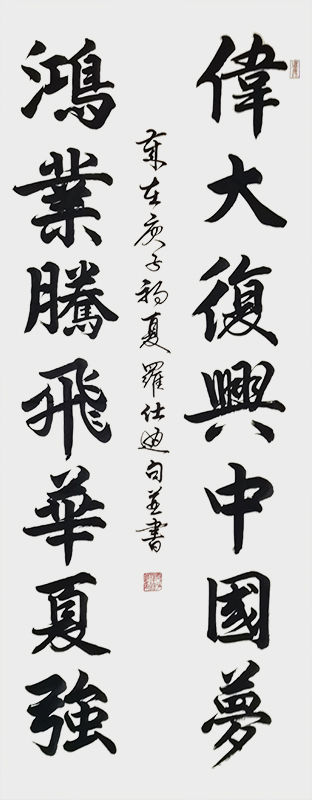 偉大復興中國夢
鴻業騰飛華夏強
歲在庚子初夏羅仕句並書